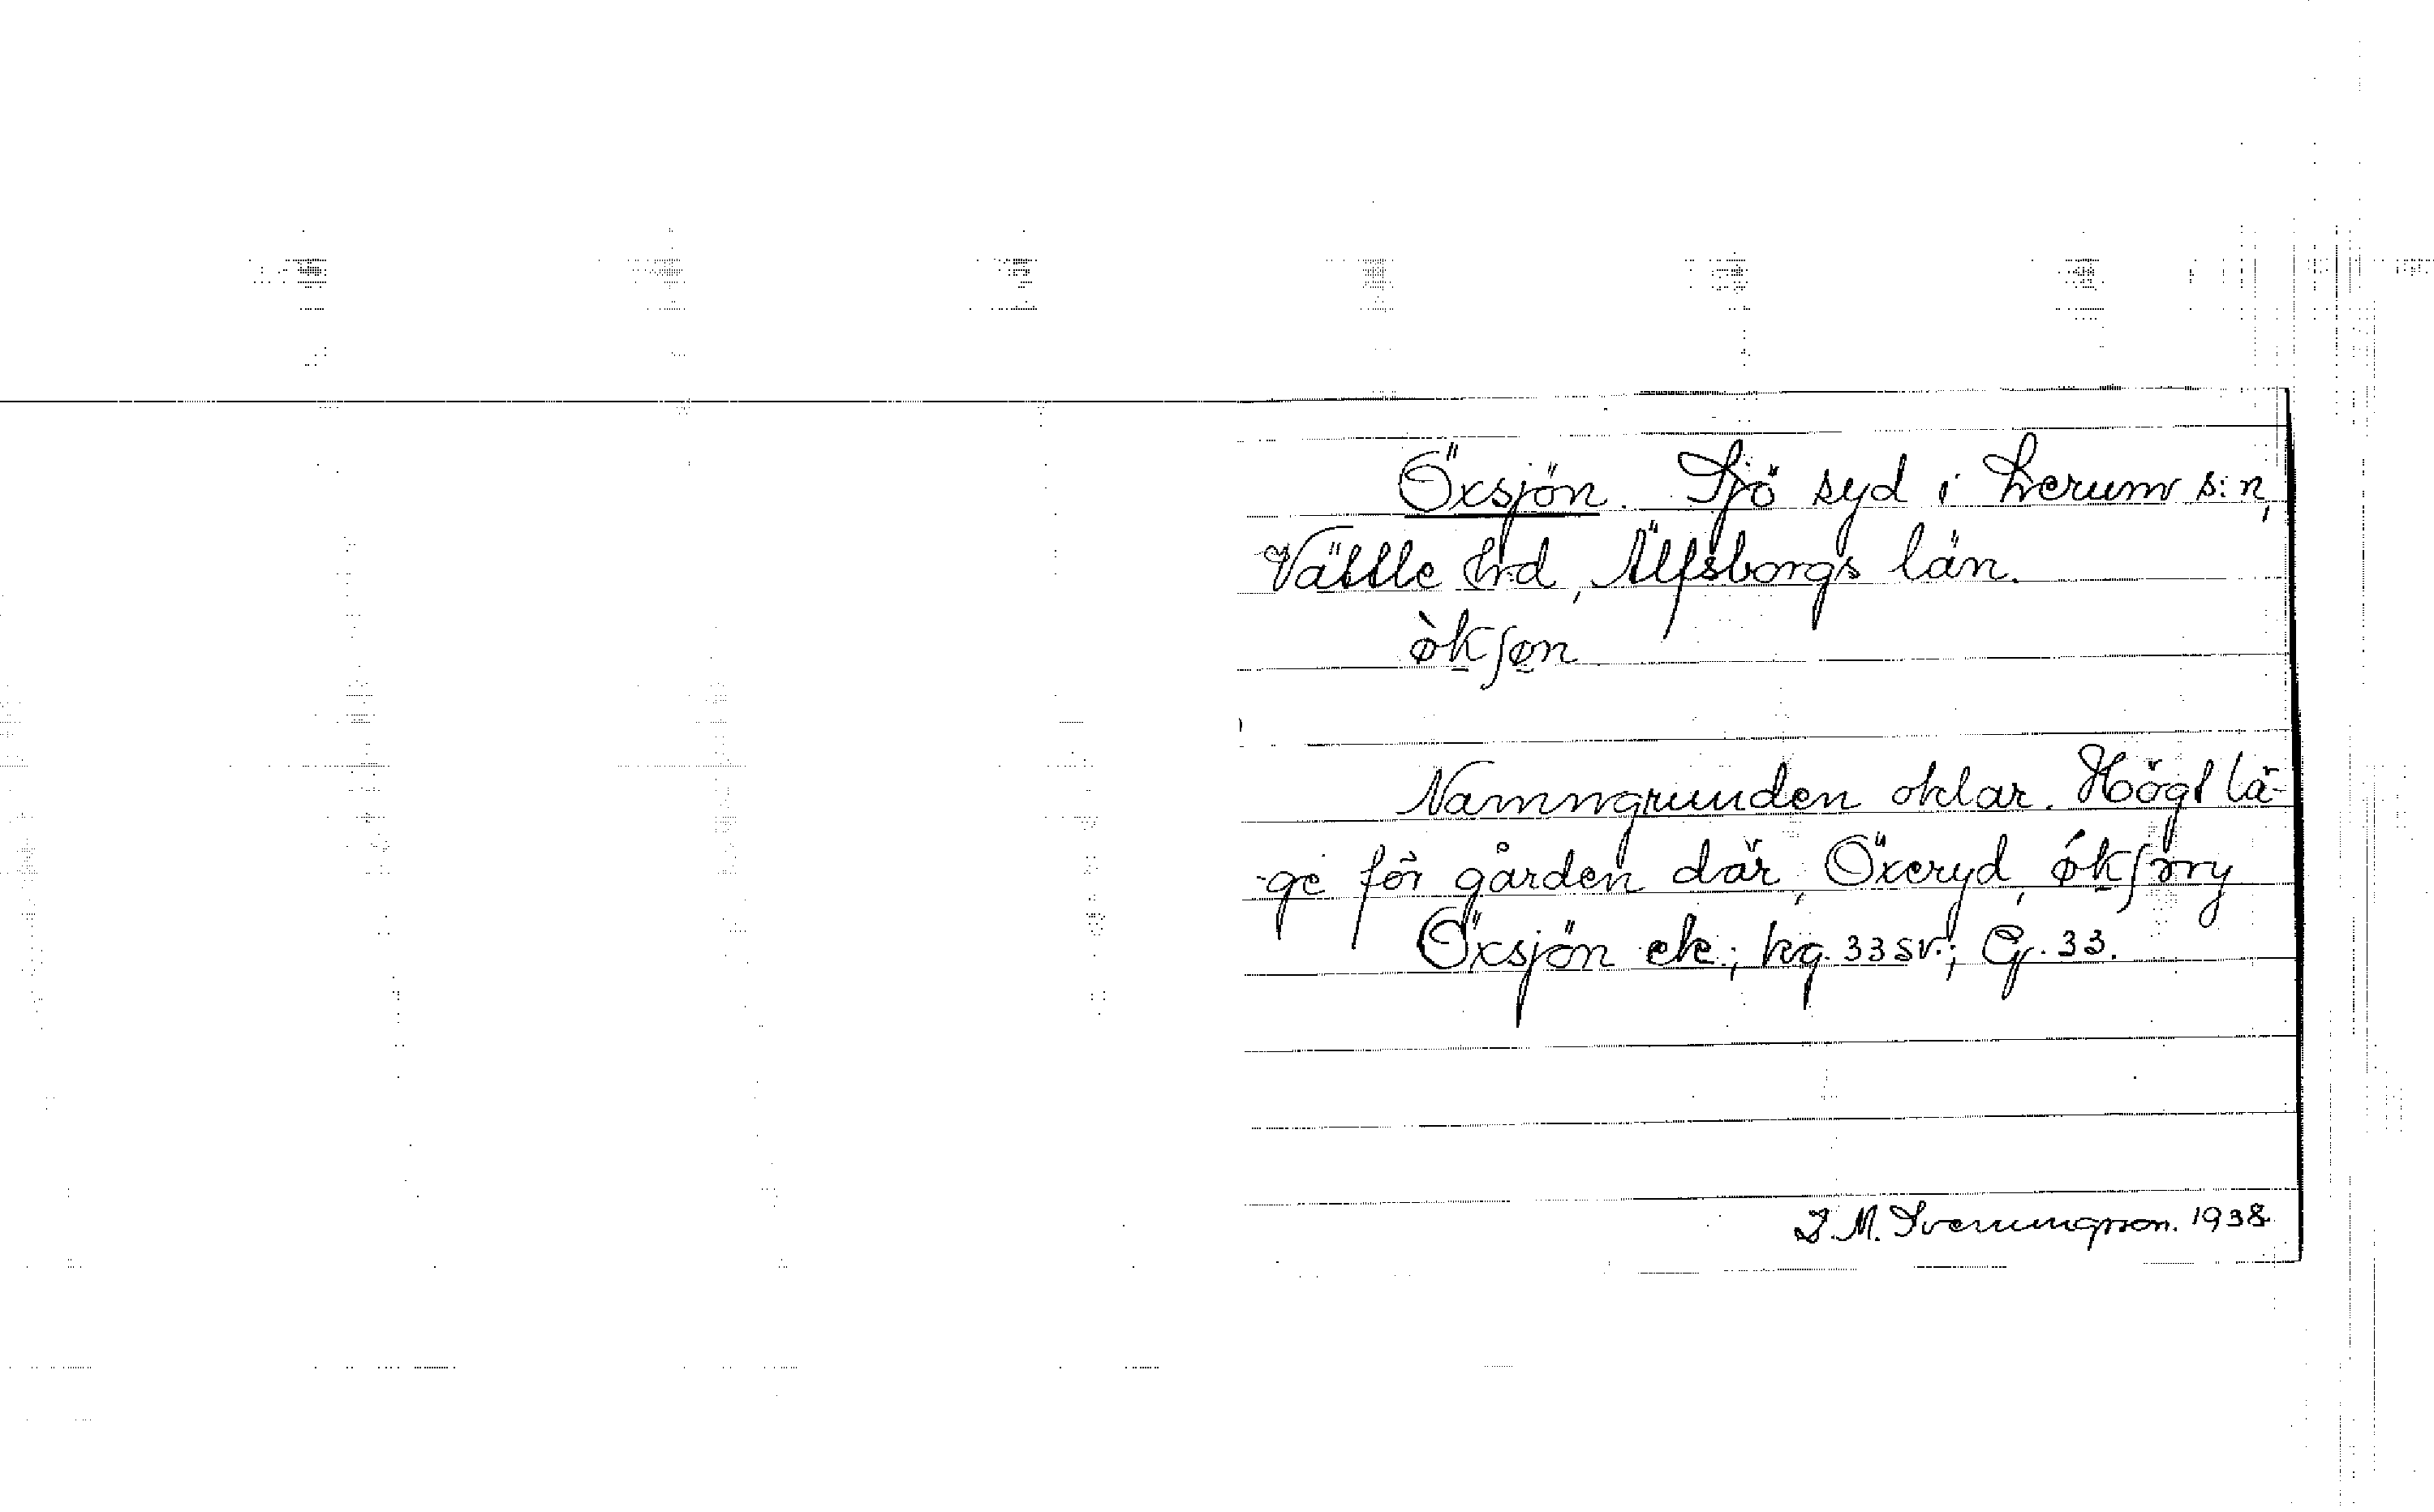 Öxsjön. Sjö syd i Lerum s:n,
Vättle hd, Älfsborgs län.
òkʃøn
Namngrunden oklar. Högt lä-
ge för gården där, Öxeryd, ókʃəry
Öxsjön ek.; kg. 33 sv.; G. 33.
J. M. Svenungsson. 1938